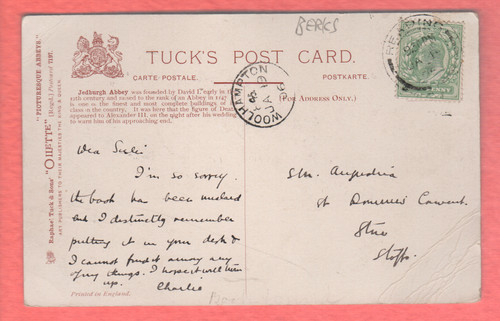 BERKS
TUCK'S POST CARD.
CARTE POSTALE. POSTKARTE.
(FOR ADDRESS ONLY.)
"PICTURESQUE ABBEYS."
"OILETTE" [Regd.] Postcard 7197.
Raphael Tuck & Sons'
ART PUBLISHERS TO THEIR MAJESTIES THE KING & QUEEN.
Jedburgh Abbey was founded by David I. early in
12th century and raised to the rank of an Abbey in 1147
is one of the finest and most complete buildings of
class in the country. It was here that the figure of Death
appeared to Alexander III. on the night after his wedding
to warn him of his approaching end.
WOOLHAMPTON
READING
PENNY
Dear Leslie
I'm so sorry
the book has been mislaid
but I distinctly remember
putting it in your desk &
I cannot find it among any
of my things. I hope it will turn
up. Charlie
Printed in England.
St Dominic's Convent
Stone
Staffs.